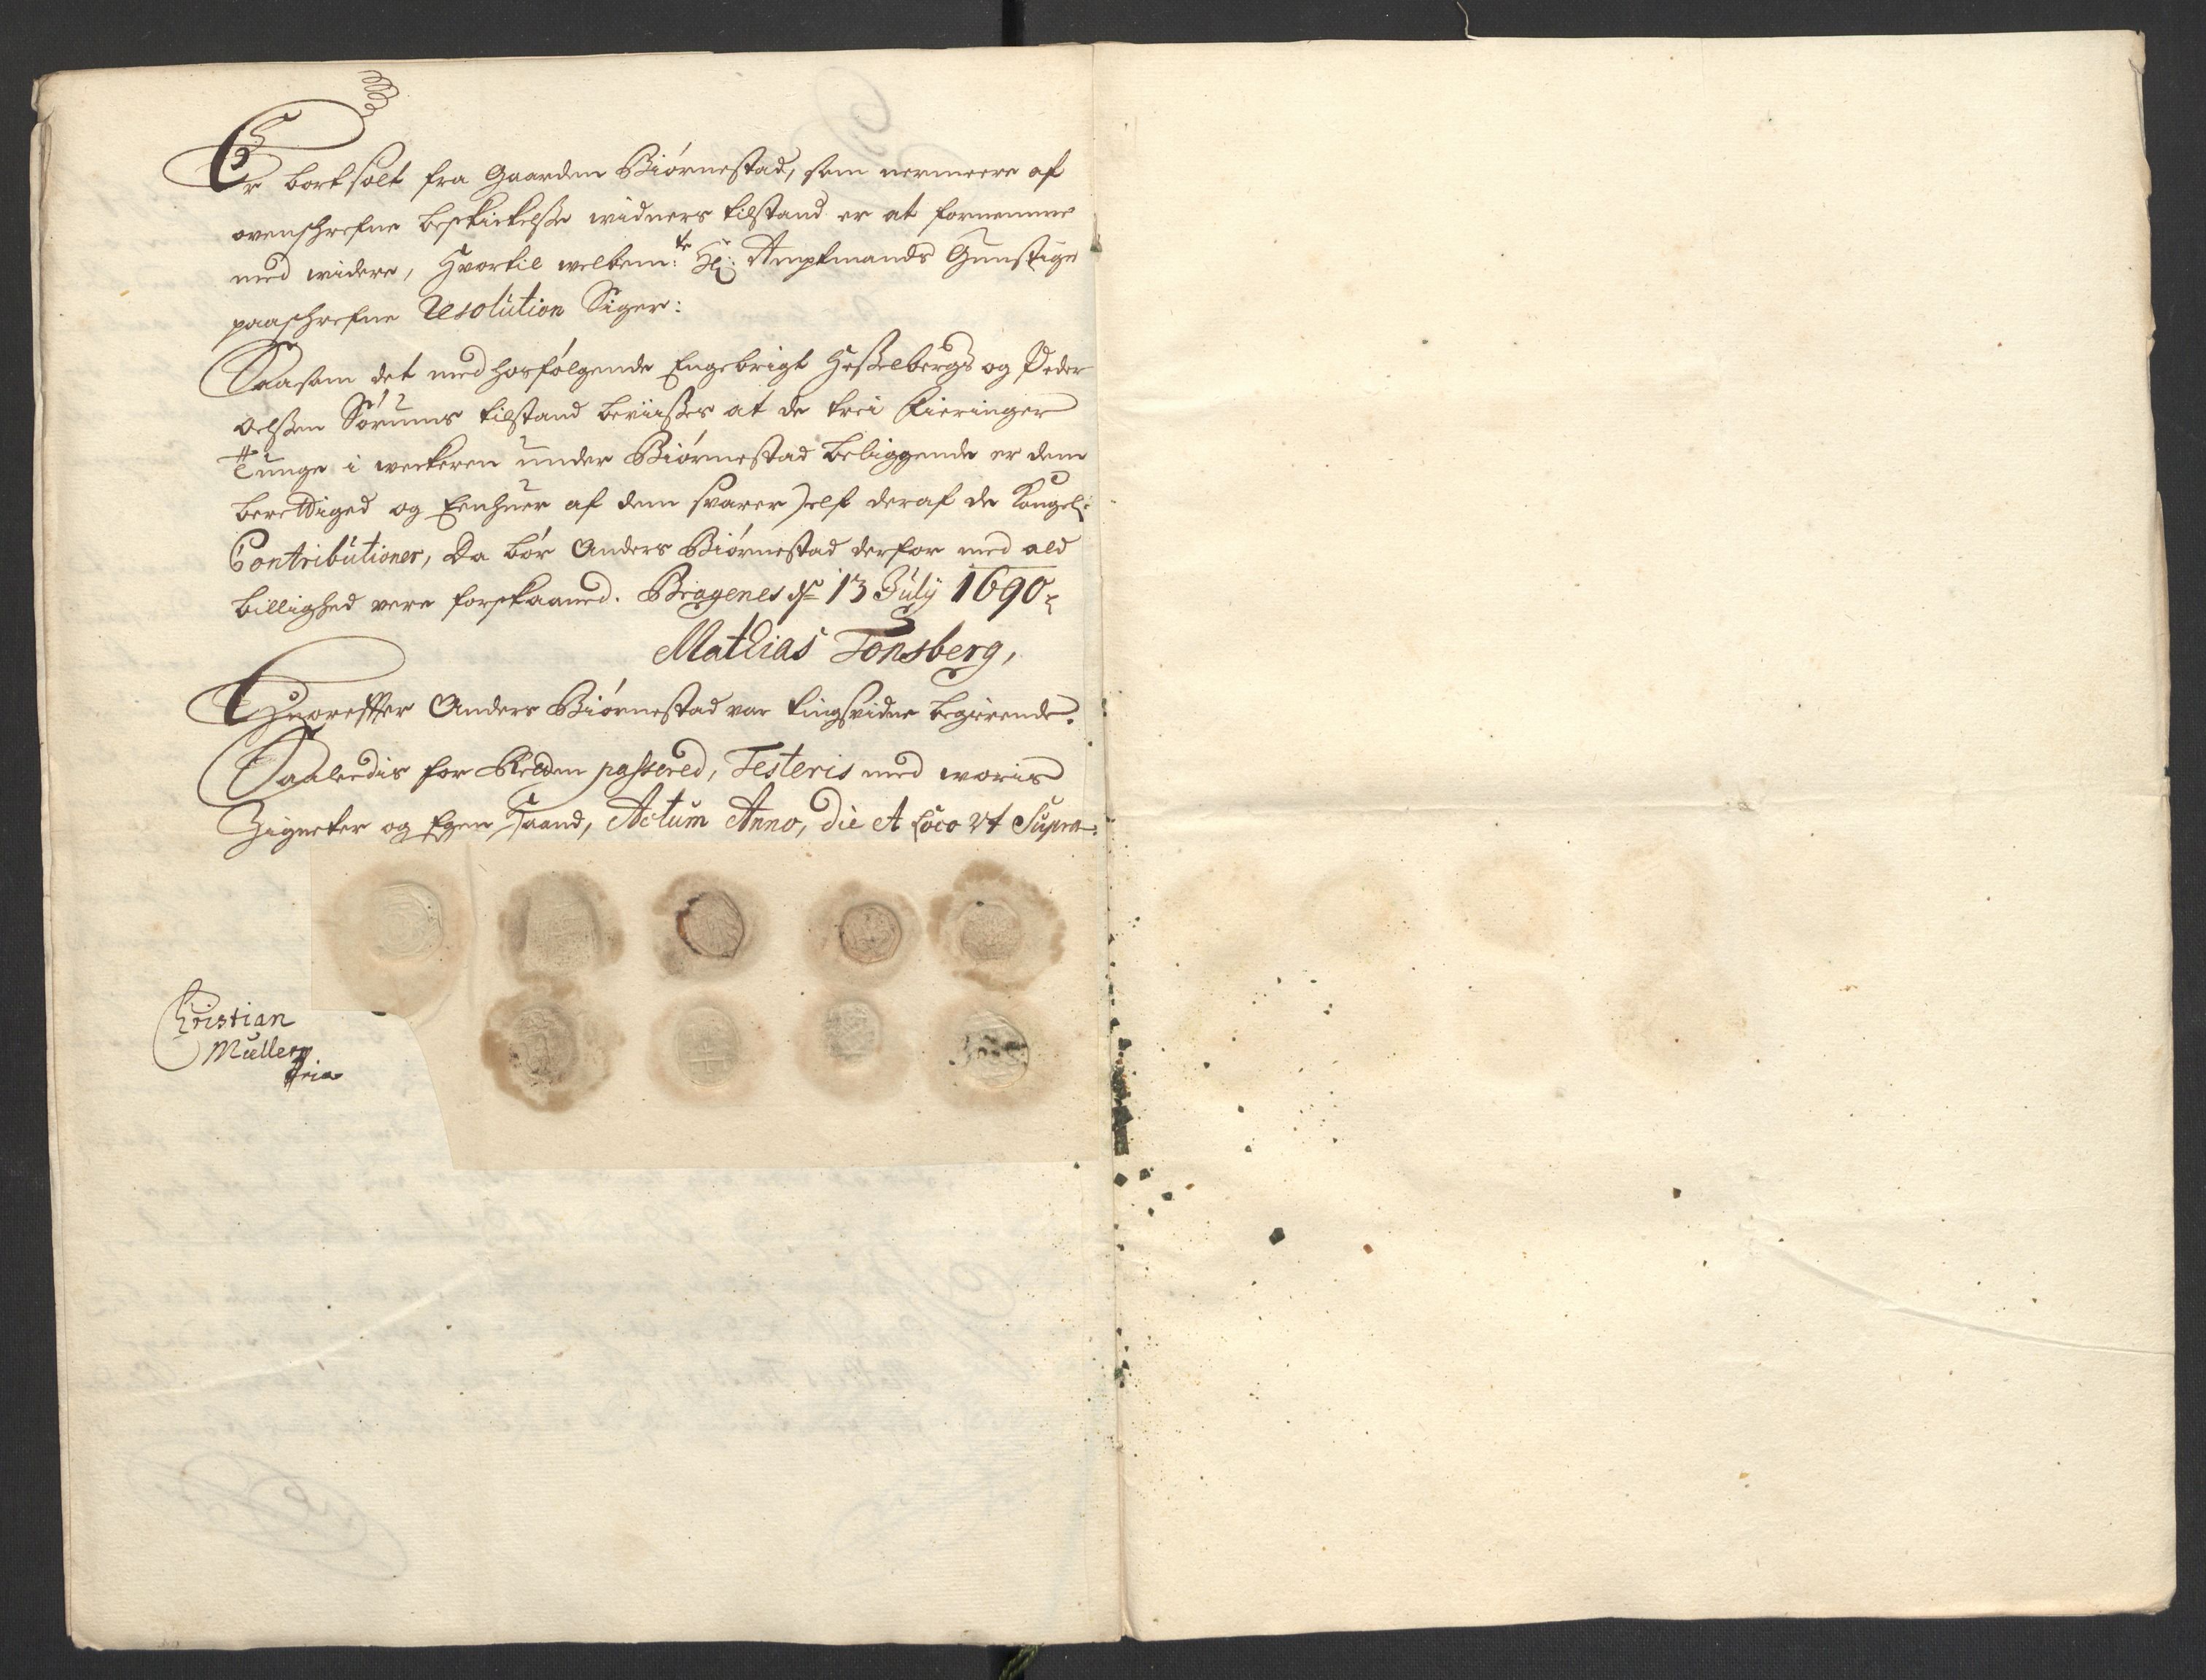 Er bortsolt fra Gaarden Biørnestad, som nermeere af
ovenschrefne beskickelsse widners tilstand er at fornemme
med widere, Hvortil welbem:te Hr: Amptmands Gunstige
paaschrefne Resolution Siger:
Saasom det med hosfølgende Engebrigt Hesselbergs og Peder
Oelssen Sørums tilstand beviisses at de trei Fieringer
Tunge i weckeren under Biørnestad beliggende er dem
berettiged og Eenhver af dem svarer self deraf de Kongel:
Contributioner, Da bør Anders Biørnestad derfor med ald
billighed vere forskaaned. Bragenes dn 13 Julij 1690
Mathias Tonsberg,
Hvorefter Anders Biørnestad var tingsvidne begierende.
Saaledis for Retten passered, Testeris med woris
Zigneter og Egen Haand, Actum Anno, die et Loco ut Supra.
Christian
Muller